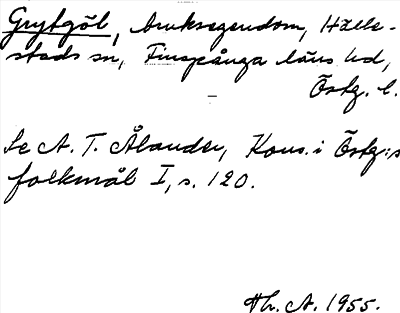 Grytgöl, bruksegendom, Hälle-
stads sn, Finspånga läns hd,
Östg. l.
Se A. T. Ålander, Kons. i Östg:s
folkmål I, s. 120.
Hr. A. 1955.